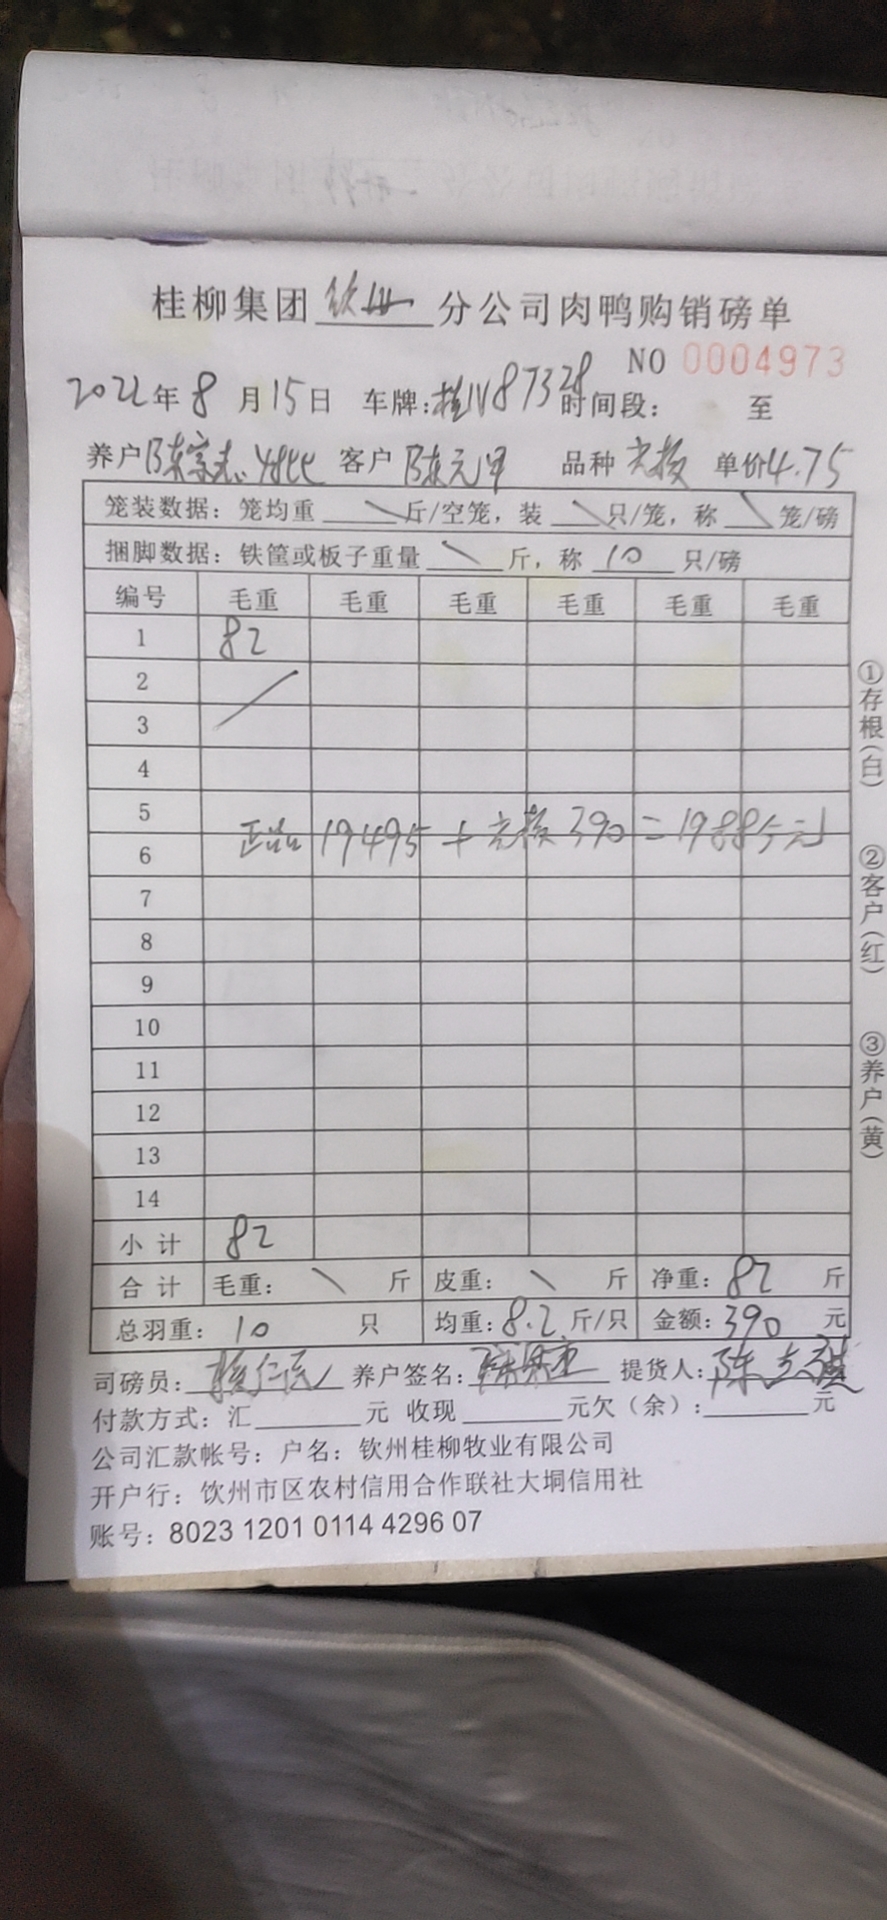 桂柳集团钦州分公司肉鸭购销磅单
NO 0004973
2022年8月15日 车牌:桂N87328 时间段: 至
养户陈家志 客户陈元甲 品种 单价4.75
笼装数据:笼均重 \ 斤/空笼,装 \ 只/笼,称 \ 笼/磅
捆脚数据:铁筐或板子重量 \ 斤,称 10 只/磅
编号 毛重 毛重 毛重 毛重 毛重 毛重
1 82
2
3
4
5
正品 19495 + 390 = 19885元
6
7
8
9
10
11
12
13
14
小计 82
合计 毛重: \ 斤 皮重: \ 斤 净重: 82 斤
总羽重: 10 只 均重:8.2斤/只 金额:390 元
司磅员: 养户签名: 提货人:陈
付款方式:汇 元 收现 元欠(余): 元
公司汇款帐号:户名:钦州桂柳牧业有限公司
开户行:钦州市区农村信用合作联社大垌信用社
账号:8023 1201 0114 4296 07
①存根(白)
②客户(红)
③养户(黄)